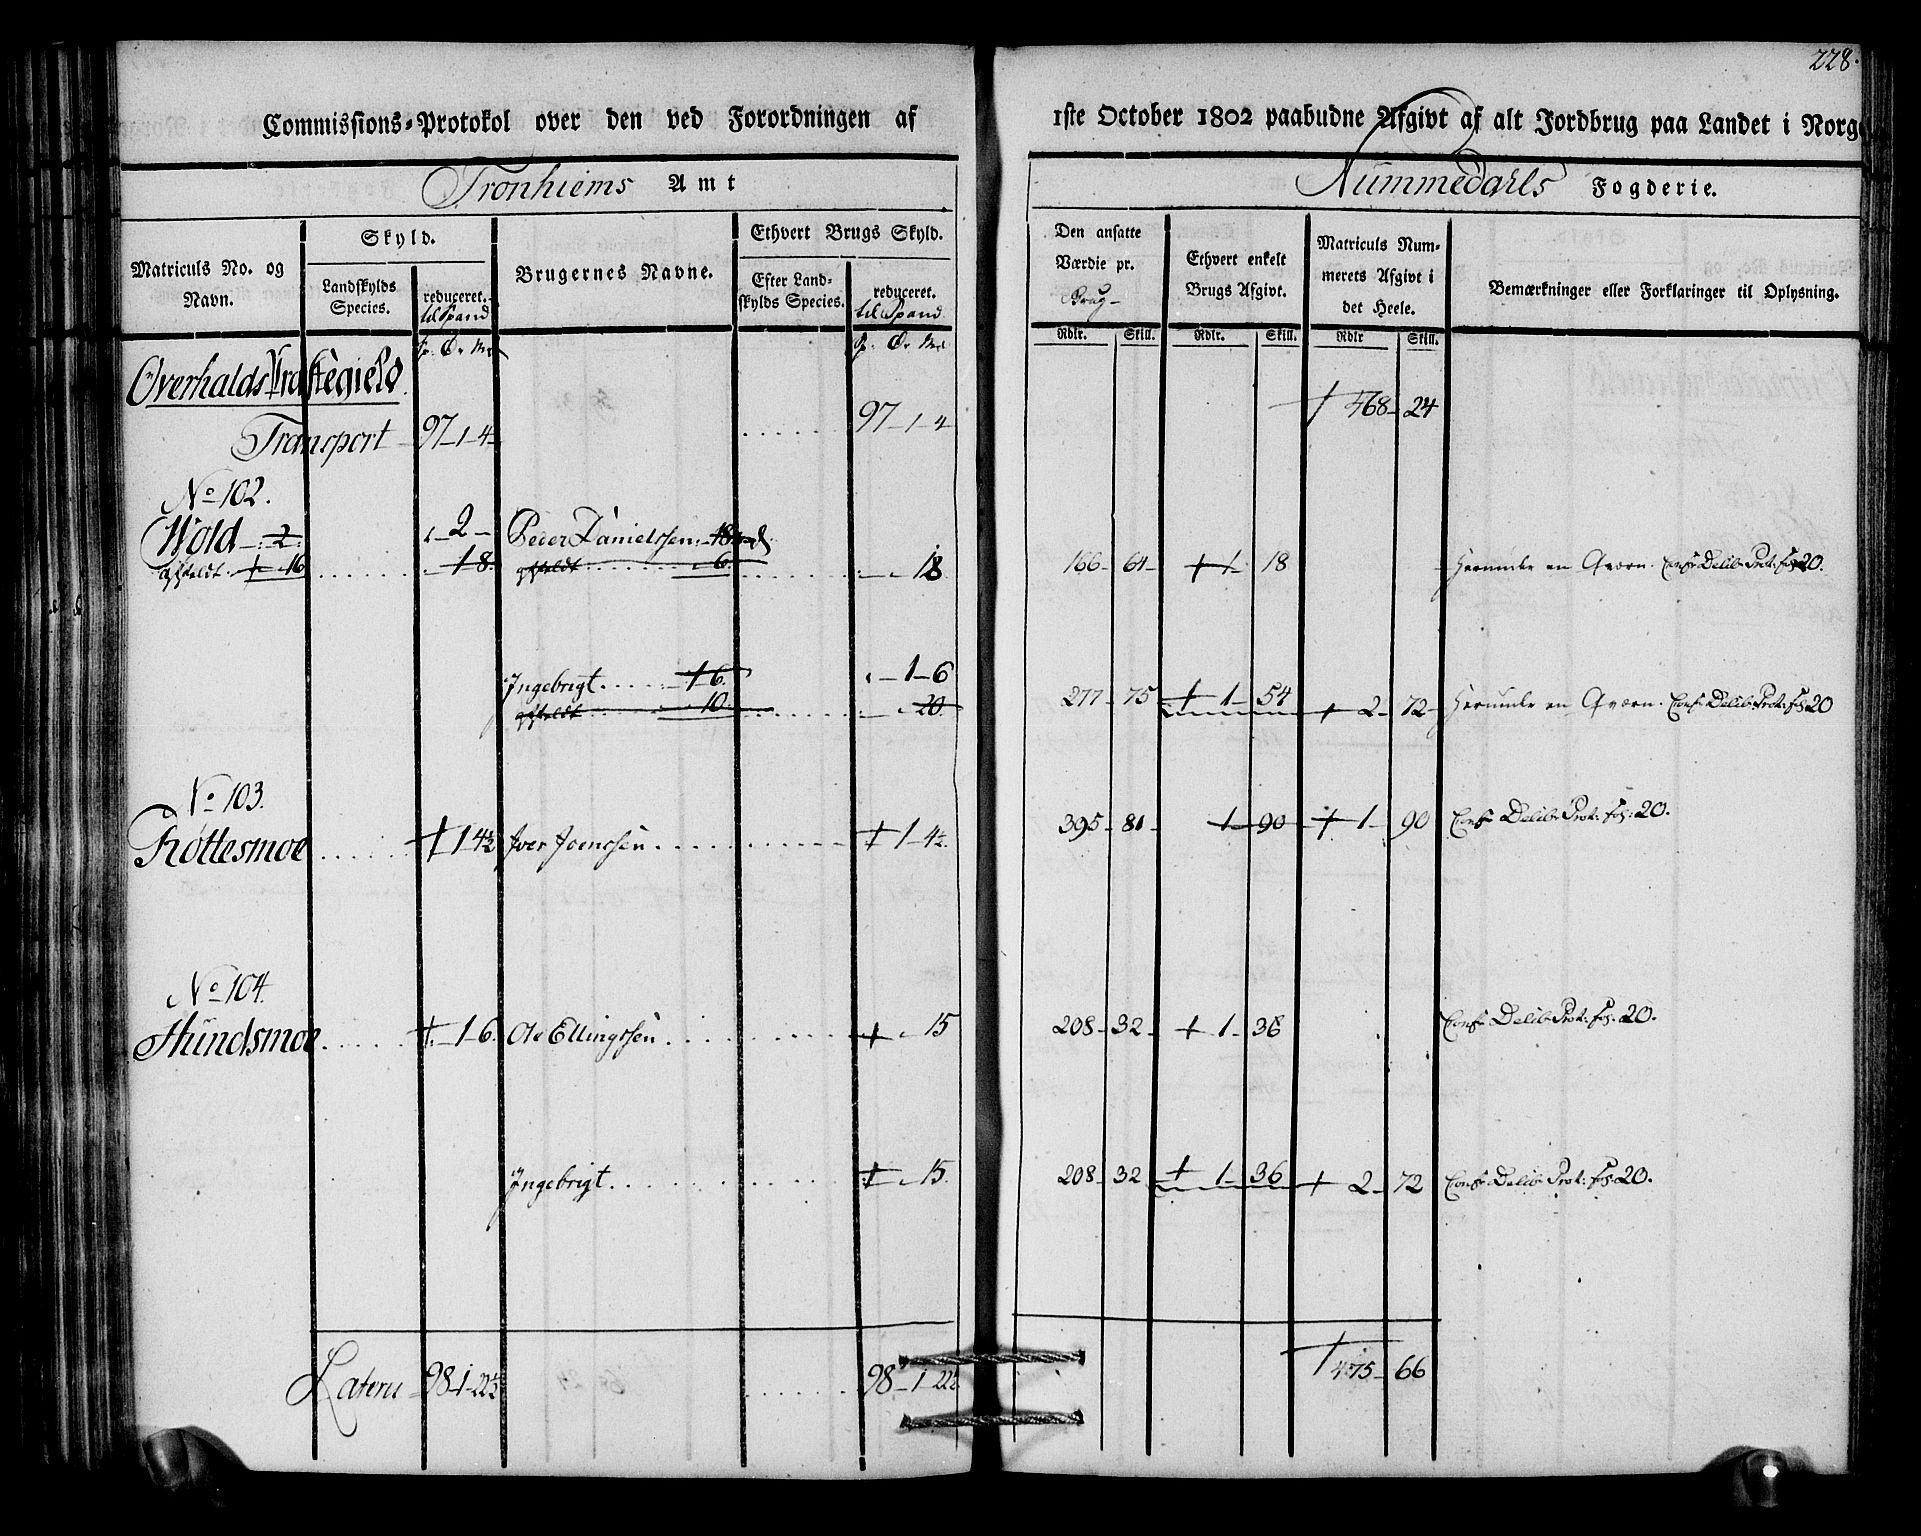 228.
Commissions-Protokol over den ved Forordningen af 1ste October 1802 paabudne Afgivt af alt Jordbrug paa Landet i Norg
Tronhiems Amt Nummedahls Fogderie.
Matriculs No. og Navn.
Skyld.
Landskylds Species.
reduceret. til Spand
Brugernes Navne.
Ethvert Brugs Skyld.
Efter Landskylds Species.
reduceret. til Spand
Den ansatte Værdie pr. Brug
Ethvert enkelt Brugs Afgivt.
Matriculs Nummerets Afgivt i det Heele.
Bemærkninger eller Forklaringer til Oplysning.
Rdlr. Skill. Rdlr. Skill. Rdlr Skill.
Overhalds Præstegield
Transport 97-1-4 97-1-4 468-24
No 102.
Wold 2 2 Peder Danielssen 18
affældt 16 18 affældt 6 18 166-64 1 18 Herunder en Qværn. Conf. Delib. Prot: fol. 20.
Ingebrigt 1 6 1-6
affældt 10 20 277-75 1-54 2-72 Herunder en Qværn. Conf. Delib. Prot: fol. 20
No 103.
Røttesmoe 1 4½ Iver Joenssen 1-4½ 395-81 1-90 1-90 Conf. Delib. Prot: fol. 20.
No 104.
Hundsmoe 1 6 Ole Ellingssen 15 208-32 1-36 Conf. Delib. Prot: fol. 20.
Ingebrigt 15 208-32 1-36 2-72 Conf. Delib. Prot: fol. 20.
Lateru 98-1-22½ 98-1-22½ 475-66